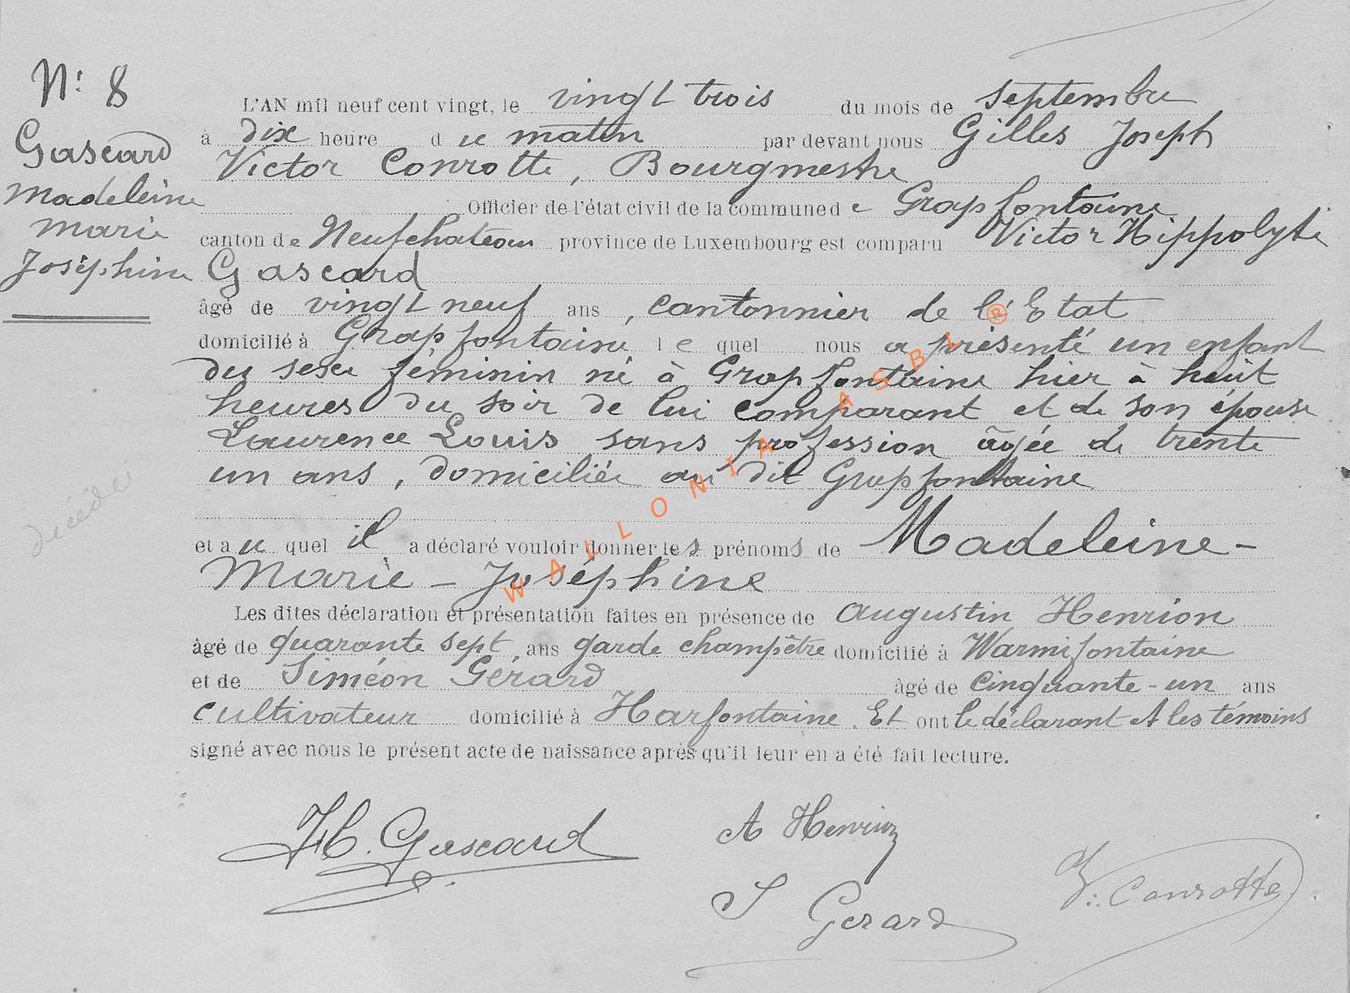 N: 8
Gascard
Madeleine
Marie
Joséphine
L'AN mil neuf cent vingt, le vingt trois du mois de septembre
à dix heure du matin par devant nous Gilles Joseph
Victor Conrotte, Bourgmestre
Officier de l'état civil de la commune de Grapfontaine
canton de Neufchateau province de Luxembourg est comparu Victor Hippolyte
Gascard
âgé de vingt neuf ans, cantonnier de l'Etat
domicilié à Grapfontaine lequel nous a présenté un enfant
du sexe féminin né à Grapfontaine hier à huit
heures du soir de lui comparant et de son épouse
Laurence Louis sans profession âgée de trente
un ans, domiciliée au dit Grapfontaine
décédée
et auquel il a déclaré vouloir donner les prénoms de Madeleine-
Marie - Joséphine
Les dites déclaration et présentation faites en présence de Augustin Henrion
âgé de quarante sept ans garde champêtre domicilié à Warmifontaine
et de Siméon Gérard âgé de cinquante-un ans
cultivateur domicilié à Harfontaine. Et ont le déclarant et les témoins
signé avec nous le présent acte de naissance après qu'il leur en a été fait lecture.
H. Gascard
A Henrion
S Gerard
V. Conrotte
WALLONIA ASBL ®